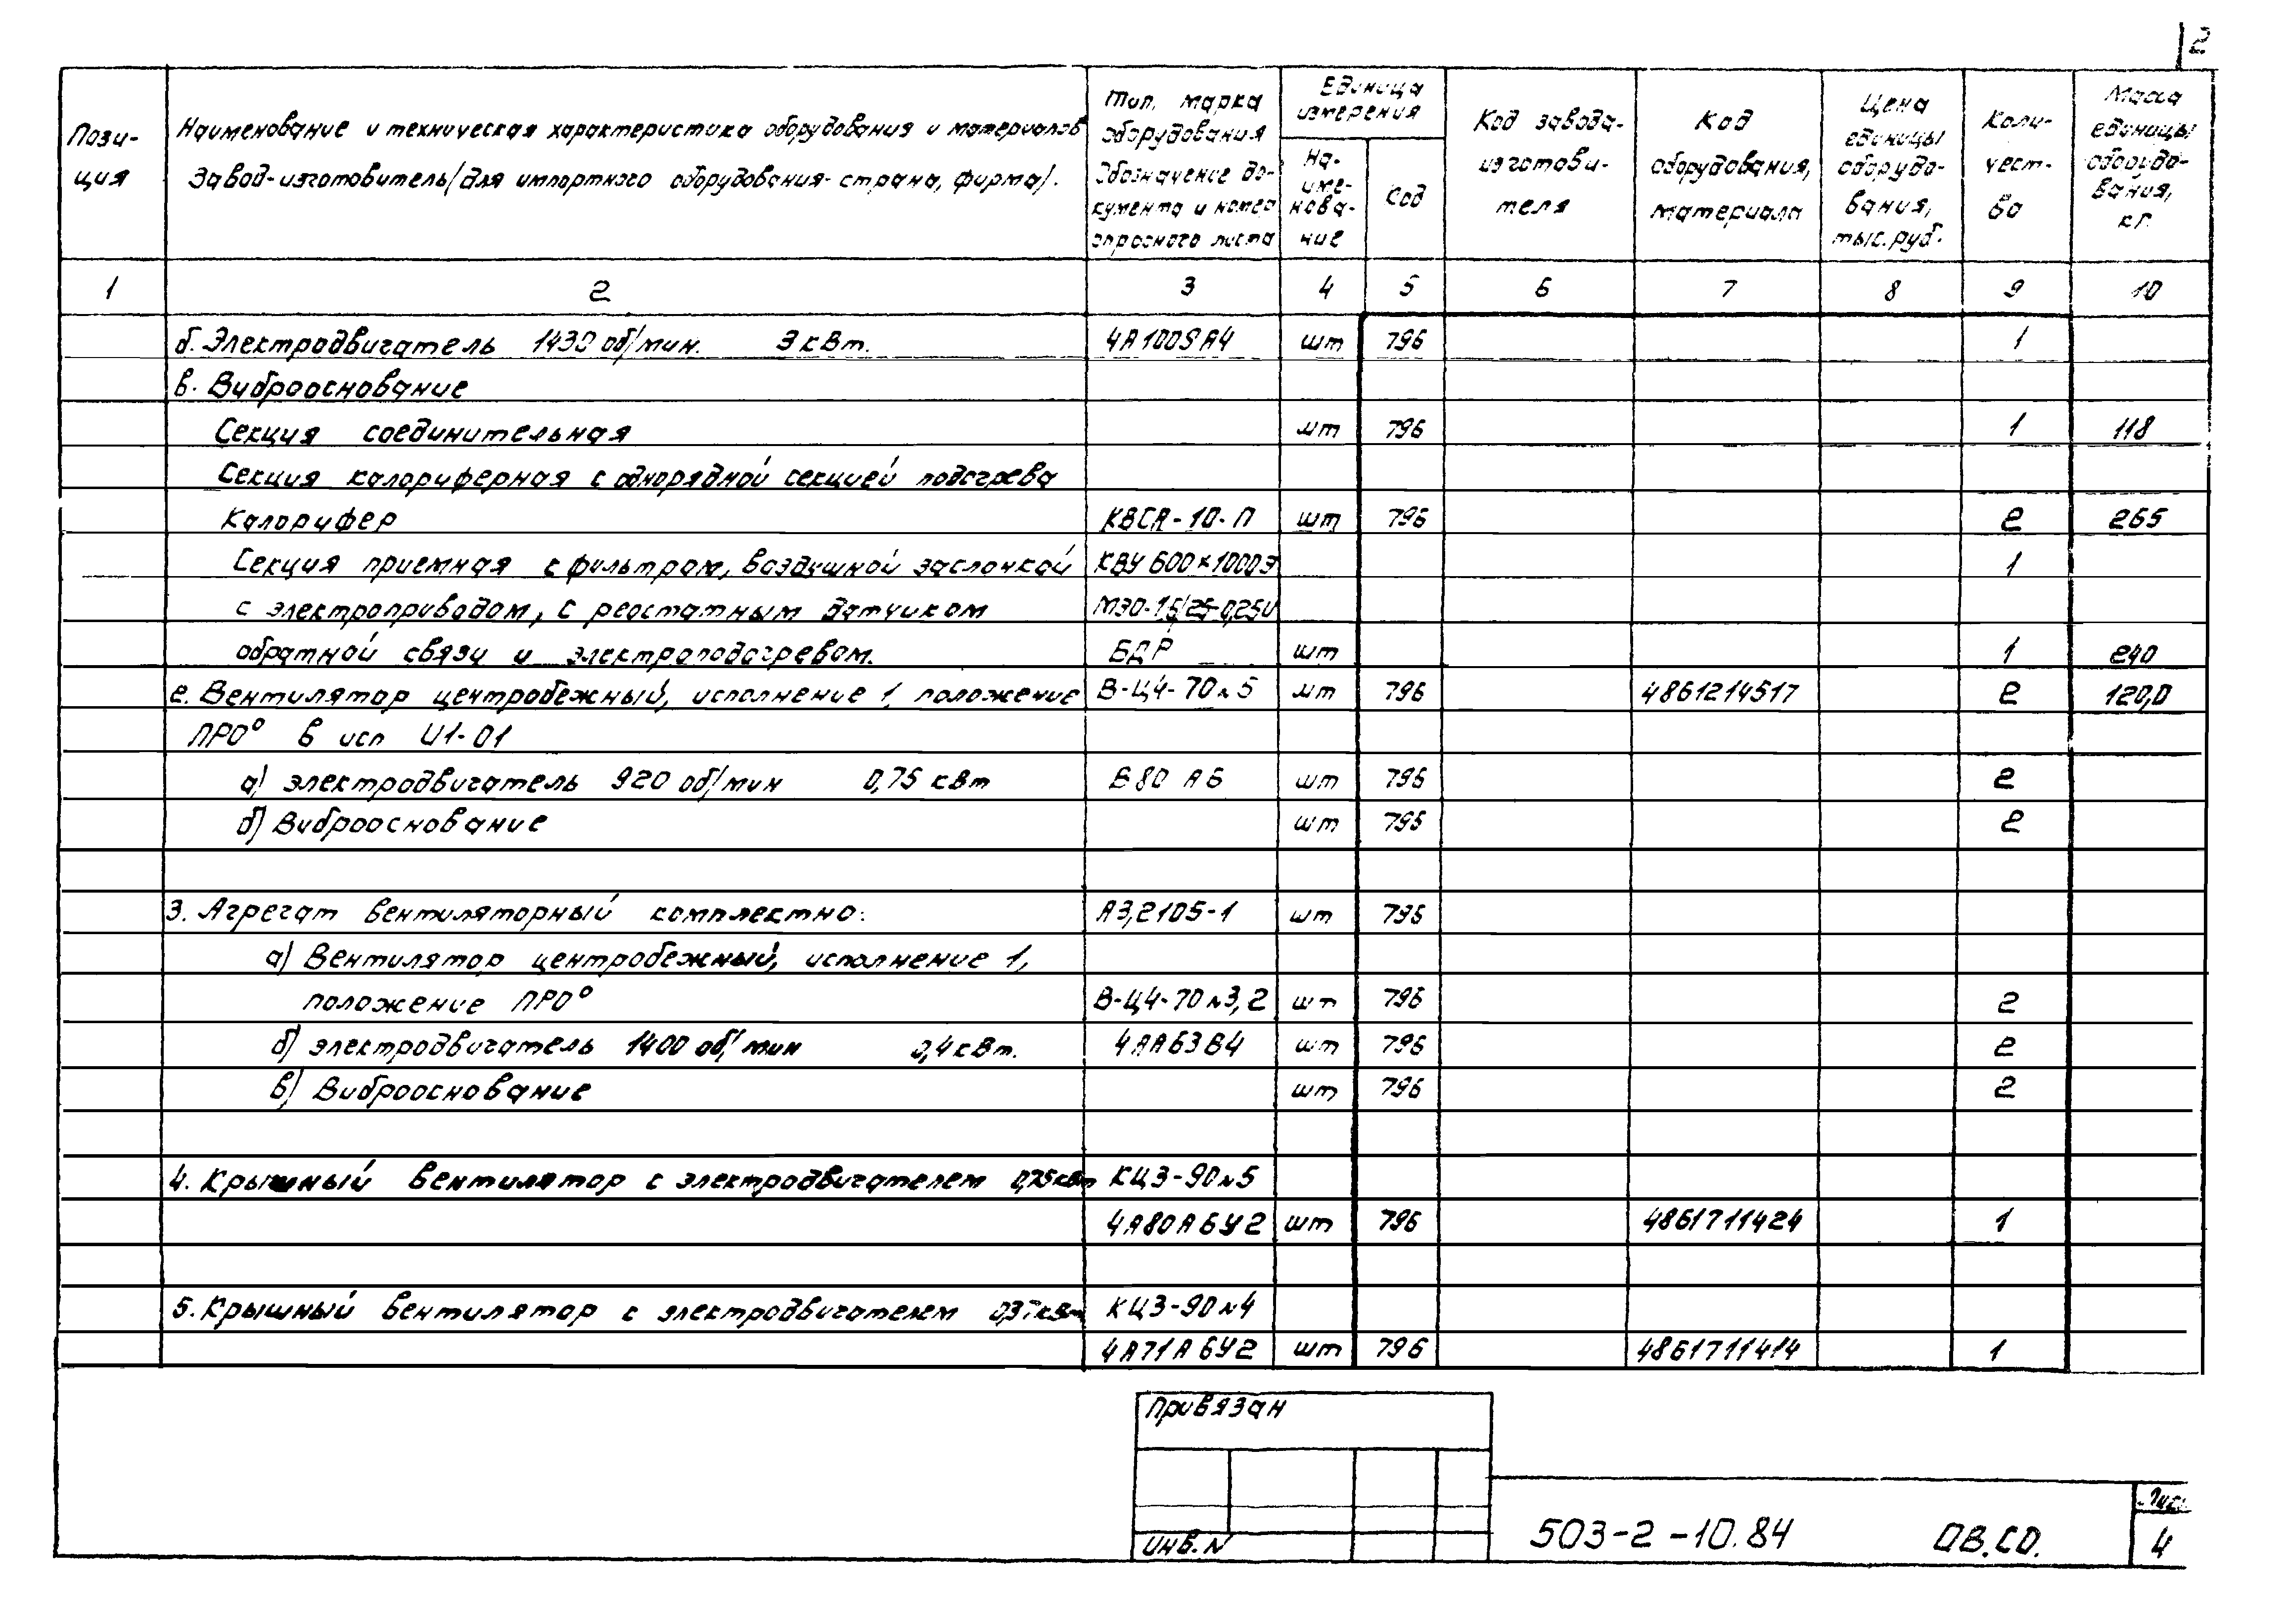 2
Пози-
ция
Наименование и техническая характеристика оборудования и материалов
Завод-изготовитель/для импортного оборудования-страна, фирма/.
Тип, марка
оборудования
Обозначение до-
кумента и номер
опросного листа
Единица
измерения
На-
име-
нова-
ние
Код
Код завода-
изготови-
теля
Код
оборудования,
материала
Цена
единицы
оборудо-
вания,
тыс.руб.
Коли-
чест-
во
Масса
единицы
оборудо-
вания,
кг.
1 2 3 4 5 6 7 8 9 10
б. Электродвигатель 1430 об/мин. 3 кВт. 4А100SА4 шт 796 1
в. Виброоснование
Секция соединительная шт 796 1 118
Секция калориферная с однорядной секцией подогрева
Калорифер КВСА-10-П шт 796 2 265
Секция приемная с фильтром, воздушной заслонкой КВУ 600×1000Э 1
с электроприводом, с реостатным датчиком МЭО-16/25-0,25И
обратной связи и электроподогревом. БДР шт 1 240
2. Вентилятор центробежный, исполнение 1, положение В-Ц4-70 №5 шт 796 4861214517 2 120,0
ПРО° в исп И1-01
а) электродвигатель 920 об/мин 0,75 кВт В80 А6 шт 796 2
б) Виброоснование шт 796 2
3. Агрегат вентиляторный комплектно: А3,2105-1 шт 796
а) Вентилятор центробежный, исполнение 1,
положение ПРО° В-Ц4-70 №3,2 шт 796 2
б) электродвигатель 1400 об/мин 0,4 кВт. 4АА63В4 шт 796 2
в) Виброоснование шт 796 2
4. Крышный вентилятор с электродвигателем 0,75 кВт КЦ3-90 №5
4А80А6У2 шт 796 4861711424 1
5. Крышный вентилятор с электродвигателем 0,37 кВт КЦ3-90 №4
4А71А6У2 шт 796 4861711414 1
Привязан
Инв. N
503-2-10.84 ОВ.СО.
Лист
4